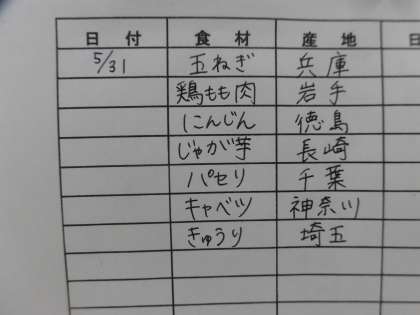 日付 食材 産地 日
5/31 玉ねぎ 兵庫
鶏もも肉 岩手
にんじん 徳島
じゃが芋 長崎
パセリ 千葉
キャベツ 神奈川
きゅうり 埼玉